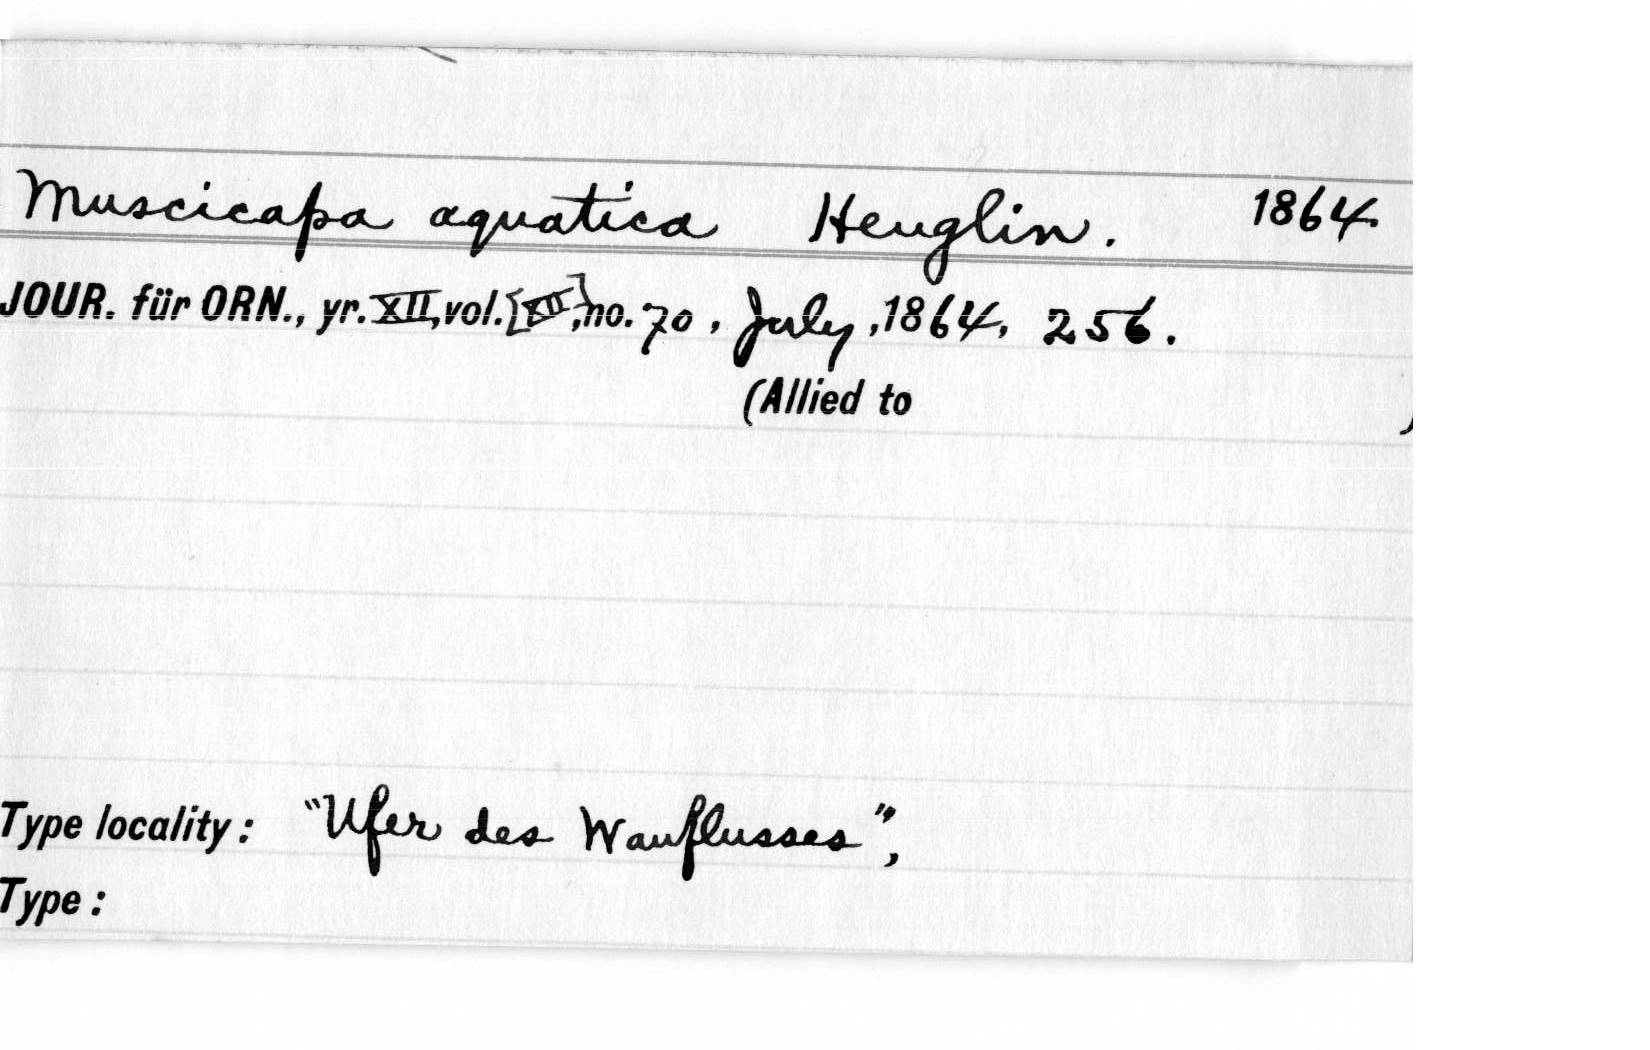 Muscicapa aquatica Heuglin. 1864.
JOUR. für ORN., yr. XII, vol. [XII], no. 70, July, 1864, 256.
(Allied to )
Type locality: "Ufer des Wauflusses",
Type: